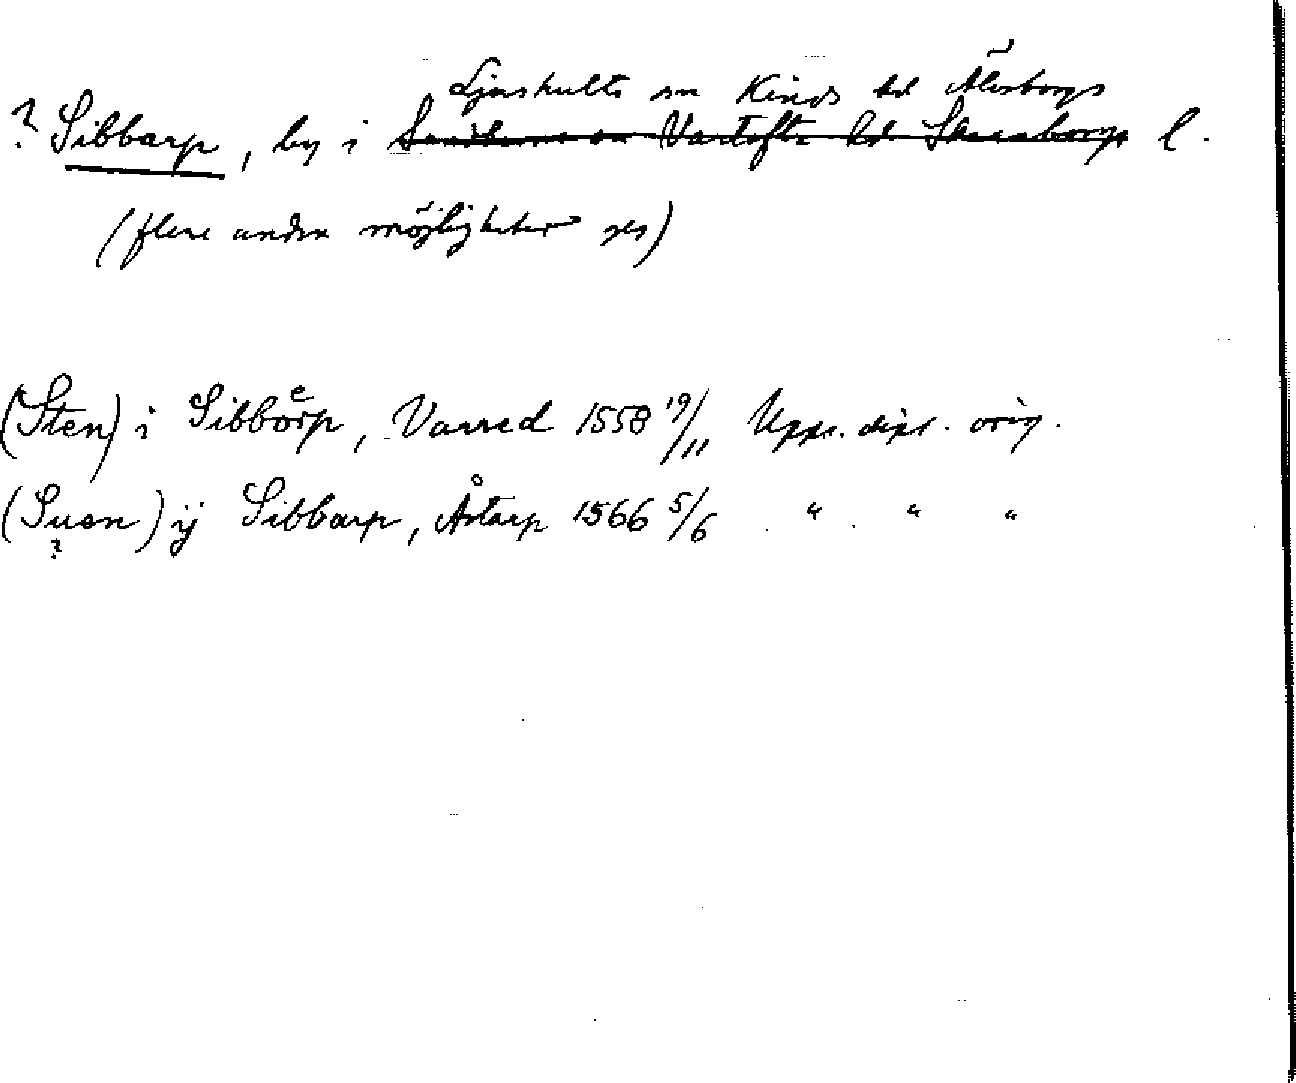 Ljushults sn Kinds hd Älvsborgs
? Sibbarp, by i Vartofta hd Skaraborgs l.
(flera andra möjligheter ges)
(Sten) i Sibboerp, Varred 1558 19/11 Upps. dipl. orig.
(Suen) ij Sibbarp, Åstarp 1566 5/6 " " "
?